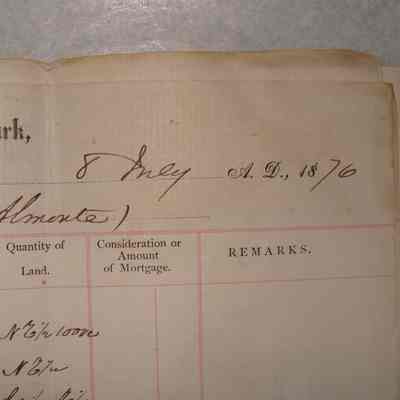 ark,
8 July A. D., 1876
Almonte)
Quantity of Land.
Consideration or Amount of Mortgage.
REMARKS.
N E ½ 100 ac
N E ½